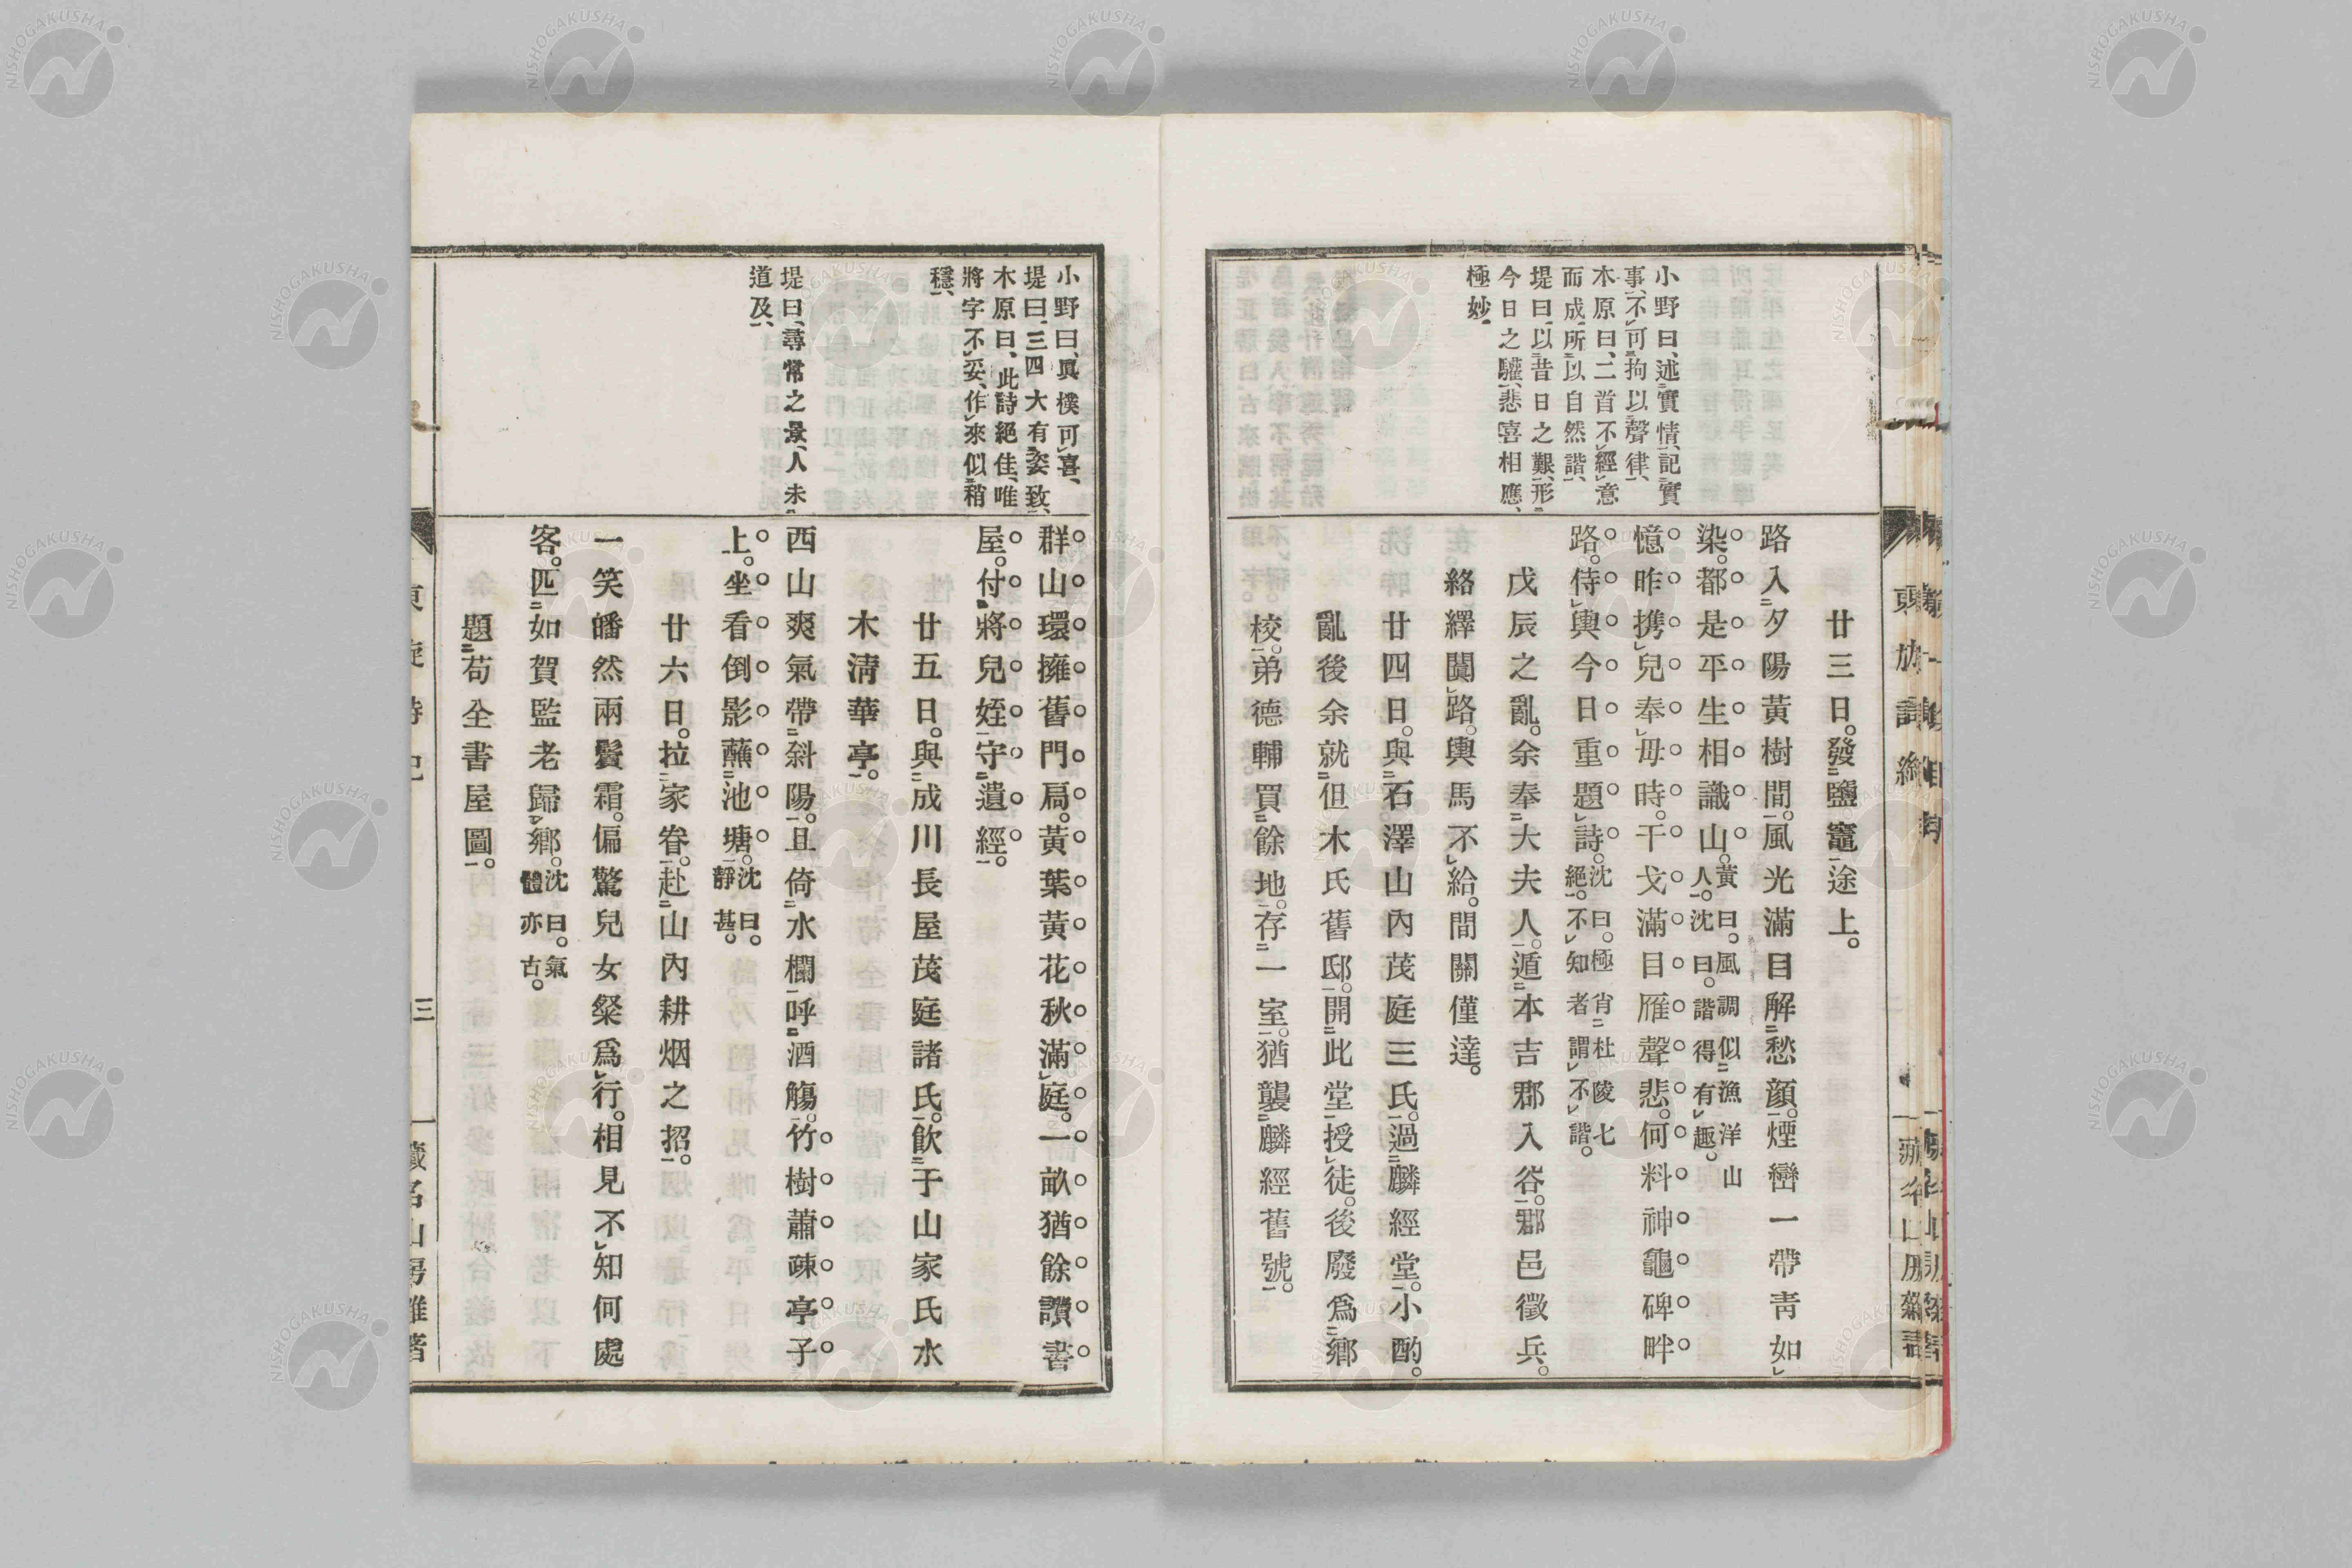 小野曰、述實情、記實
事、不可拘以聲律、
木原曰、二首不經意
而成、所以自然諧、
堤曰、以昔日之艱、形
今日之驩、悲喜相應、
極妙、
廿三日。發鹽竈途上。
路入夕陽黃樹間。風光滿目解愁顏。煙巒一帶靑如
染。都是平生相識山。黃曰。風調似漁洋山
人。沈曰。諧得有趣。
憶昨携兒奉母時。干戈滿目雁聲悲。何料神龜碑畔
路。侍輿今日重題詩。沈曰。極肖杜陵七
絕。不知者謂不諧。
戊辰之亂。余奉大夫人。遁本吉郡入谷。郡邑徵兵。
絡繹闐路。輿馬不給。間關僅達。
廿四日。與石澤山內茂庭三氏。過麟經堂。小酌。
亂後余就但木氏舊邸。開此堂授徒。後廢爲鄉
校。弟德輔買餘地。存一室。猶襲麟經舊號。
小野曰、眞樸可喜、
堤曰、三四大有姿致、
木原曰、此詩絕佳、唯
將字不妥、作來似稍
穩、
堤曰、尋常之景、人未
道及、
群山環擁舊門局。黃葉黃花秋滿庭。一畝猶餘讀書
屋。付將兒姪守遺經。
廿五日。與成川長屋茂庭諸氏。飮于山家氏水
木淸華亭。
西山爽氣帶斜陽。且倚水欄呼酒觴。竹樹蕭疎亭子
上。坐看倒影蘸池塘。沈曰。
靜甚。
廿六日。拉家眷。赴山內耕烟之招。
一笑皤然兩鬢霜。偏驚兒女粲爲行。相見不知何處
客。匹如賀監老歸鄉。沈曰。氣
體亦古。
題苟全書屋圖。
三